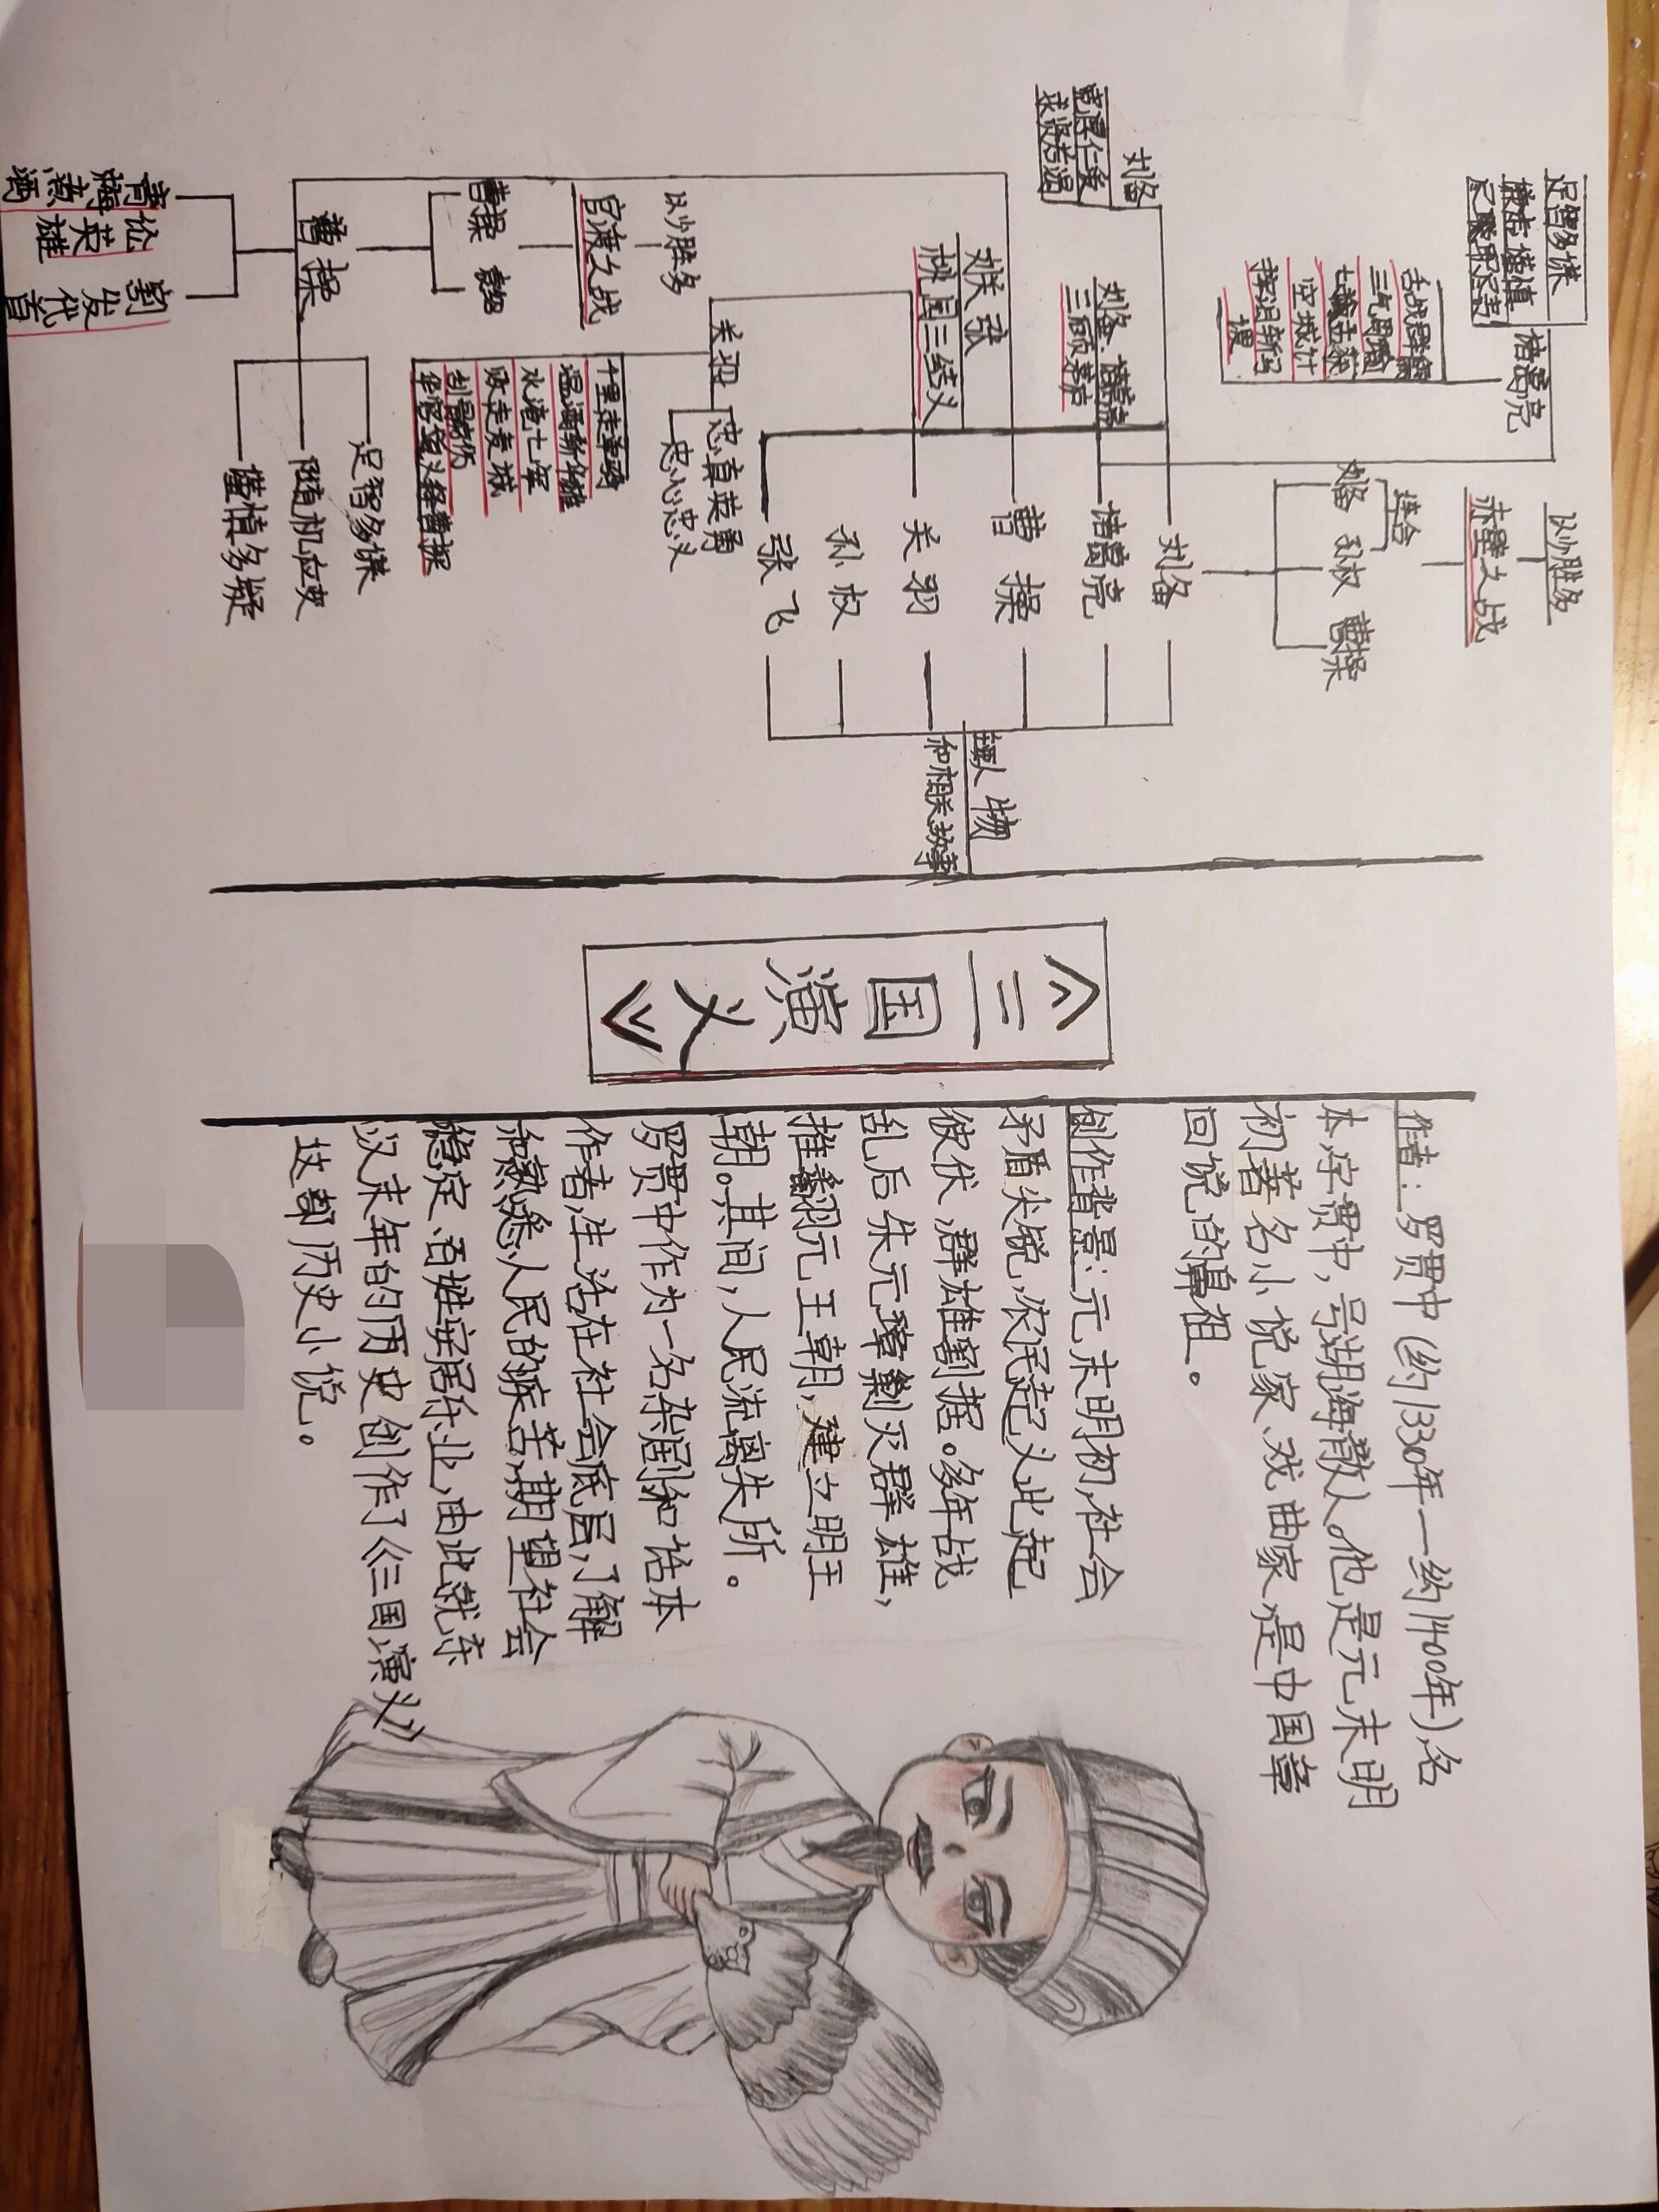 以少胜多
赤壁之战
联合
刘备 孙权 曹操
足智多谋
谦虚谨慎
尽职尽责
诸葛亮
舌战群儒
三气周瑜
七擒孟获
空城计
挥泪斩马
谡
刘备
宽厚仁爱
求贤若渴
刘备 诸葛亮
三顾茅庐
刘关张
桃园三结义
刘备
诸葛亮
曹操
关羽
孙权
张飞
主要人物
和相关故事
关羽
忠真英勇
忠心忠义
千里走单骑
温酒斩华雄
水淹七军
败走麦城
刮骨疗伤
华容道义释曹操
以少胜多
官渡之战
曹操 袁绍
曹操
足智多谋
随机应变
谨慎多疑
青梅煮酒
论英雄
割发代首
《三国演义》
作者:罗贯中(约1330年—约1400年),名
本,字贯中,号湖海散人。他是元末明
初著名小说家、戏曲家,是中国章
回说的鼻祖。
创作背景:元末明初,社会
矛盾尖锐,农民起义此起
彼伏,群雄割据。多年战
乱后朱元璋剿灭群雄,
推翻元王朝,建立明王
朝。其间,人民流离失所。
罗贯中作为一名杂剧和话本
作者,生活在社会底层,了解
和熟悉人民的疾苦,期望社会
稳定、百姓安居乐业,由此就东
汉末年的历史创作了《三国演义》
这部历史小说。